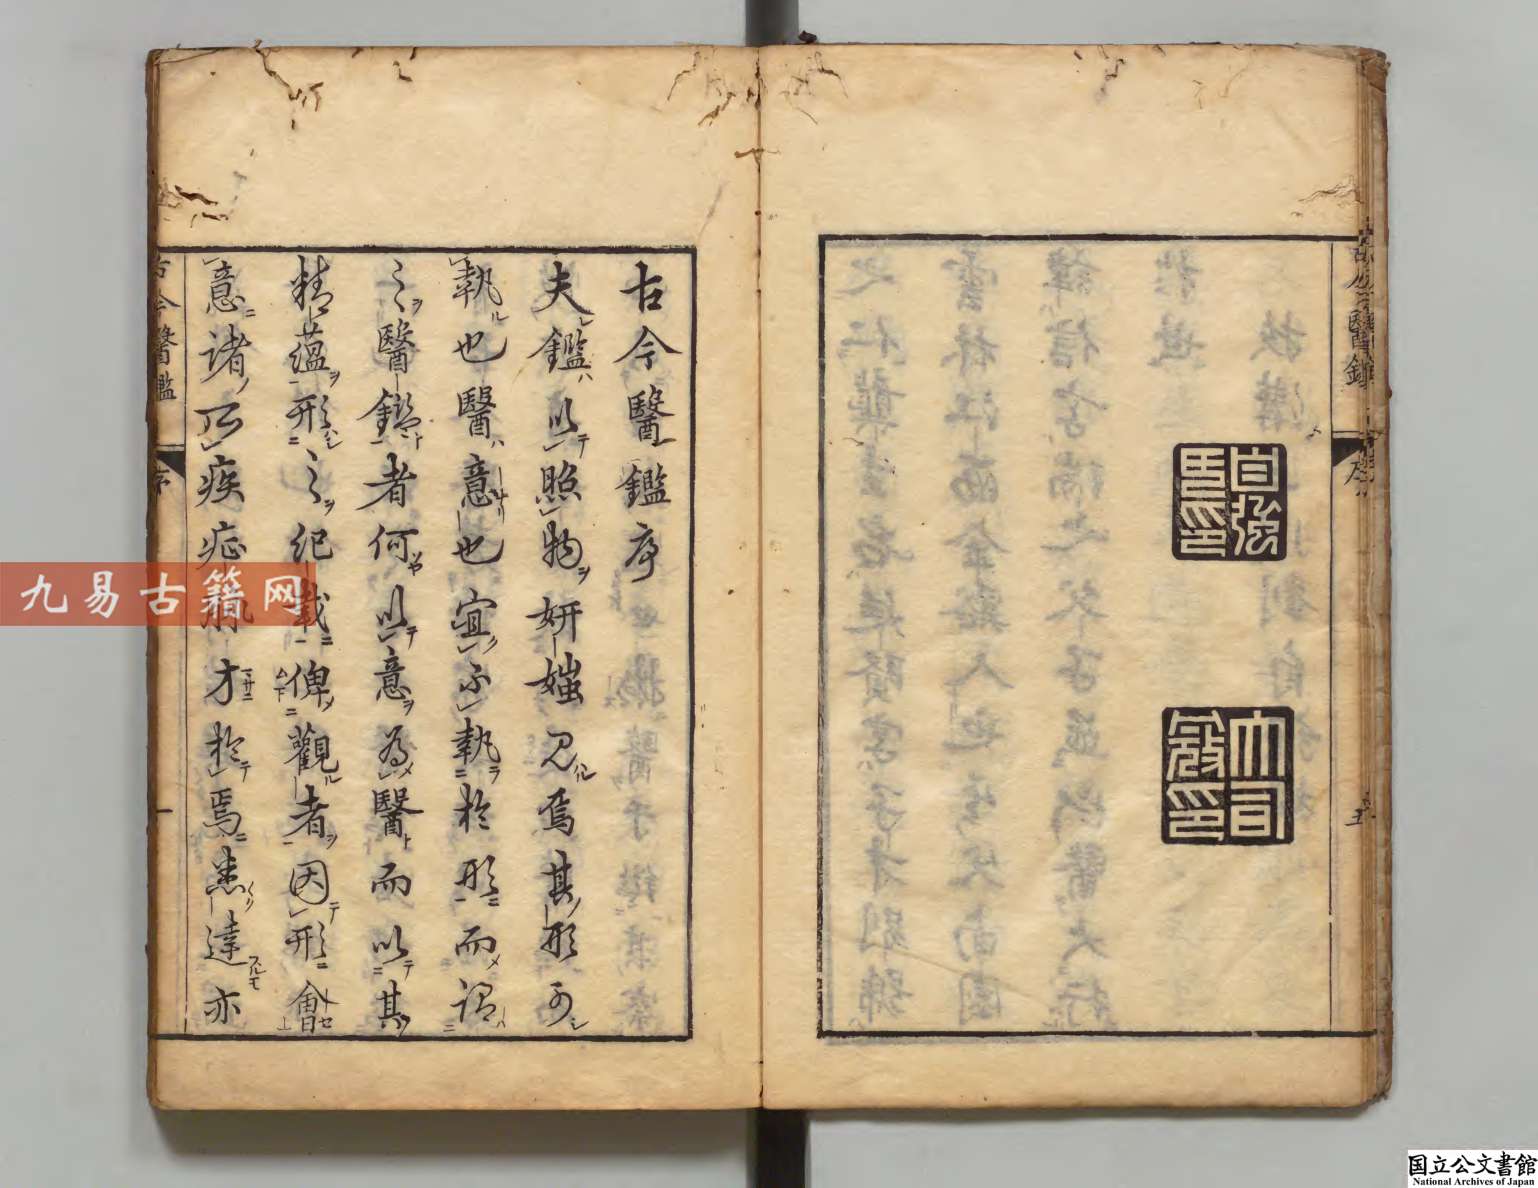 古今醫鑑
序
五
自強
大司
古今醫鑑序
夫鑑以照物妍媸見焉其形可
執也醫意也宜不執於形而謂
之醫鑑者何以意為醫而以其
精蘊形之紀載俾觀者因形會
意諸疾症於焉悉達亦
古今醫鑑
序
一
九易古籍网
国立公文書館
National Archives of Japan